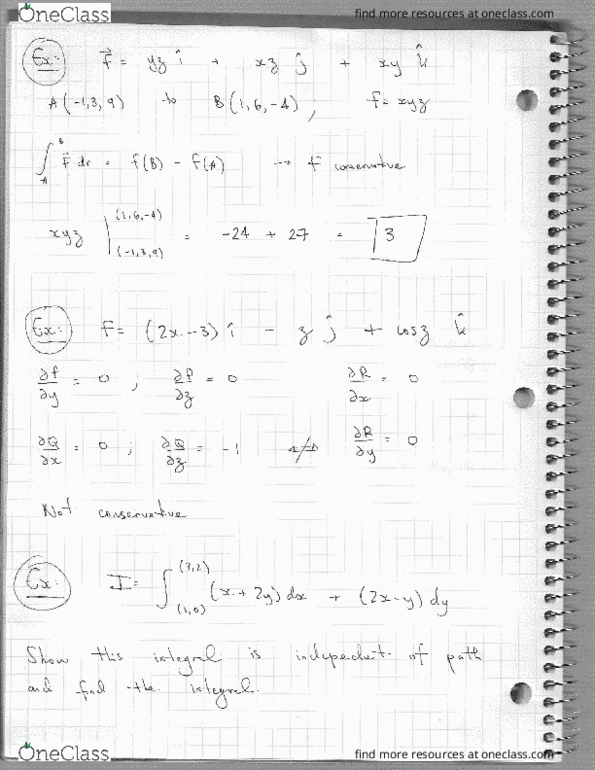 OneClass find more resources at oneclass.com
Ex: F⃗ = yz î + xz ĵ + xy k̂
A(-1,3,9) to B(1,6,-4), f=xyz
∫_A^B F⃗ dr = f(B) - f(A) → F conservative
xyz |_(-1,3,9)^(1,6,-4) = -24 + 27 = 3
Ex: F = (2x-3) î - z ĵ + cosz k̂
∂P/∂y = 0 ; ∂P/∂z = 0 ∂R/∂x = 0
∂Q/∂x = 0 ; ∂Q/∂z = -1 ∂R/∂y = 0
Not conservative
Ex: I = ∫_(1,0)^(3,2) (x+2y)dx + (2x-y)dy
Show this integral is independent of path
and find the integral.
OneClass find more resources at oneclass.com